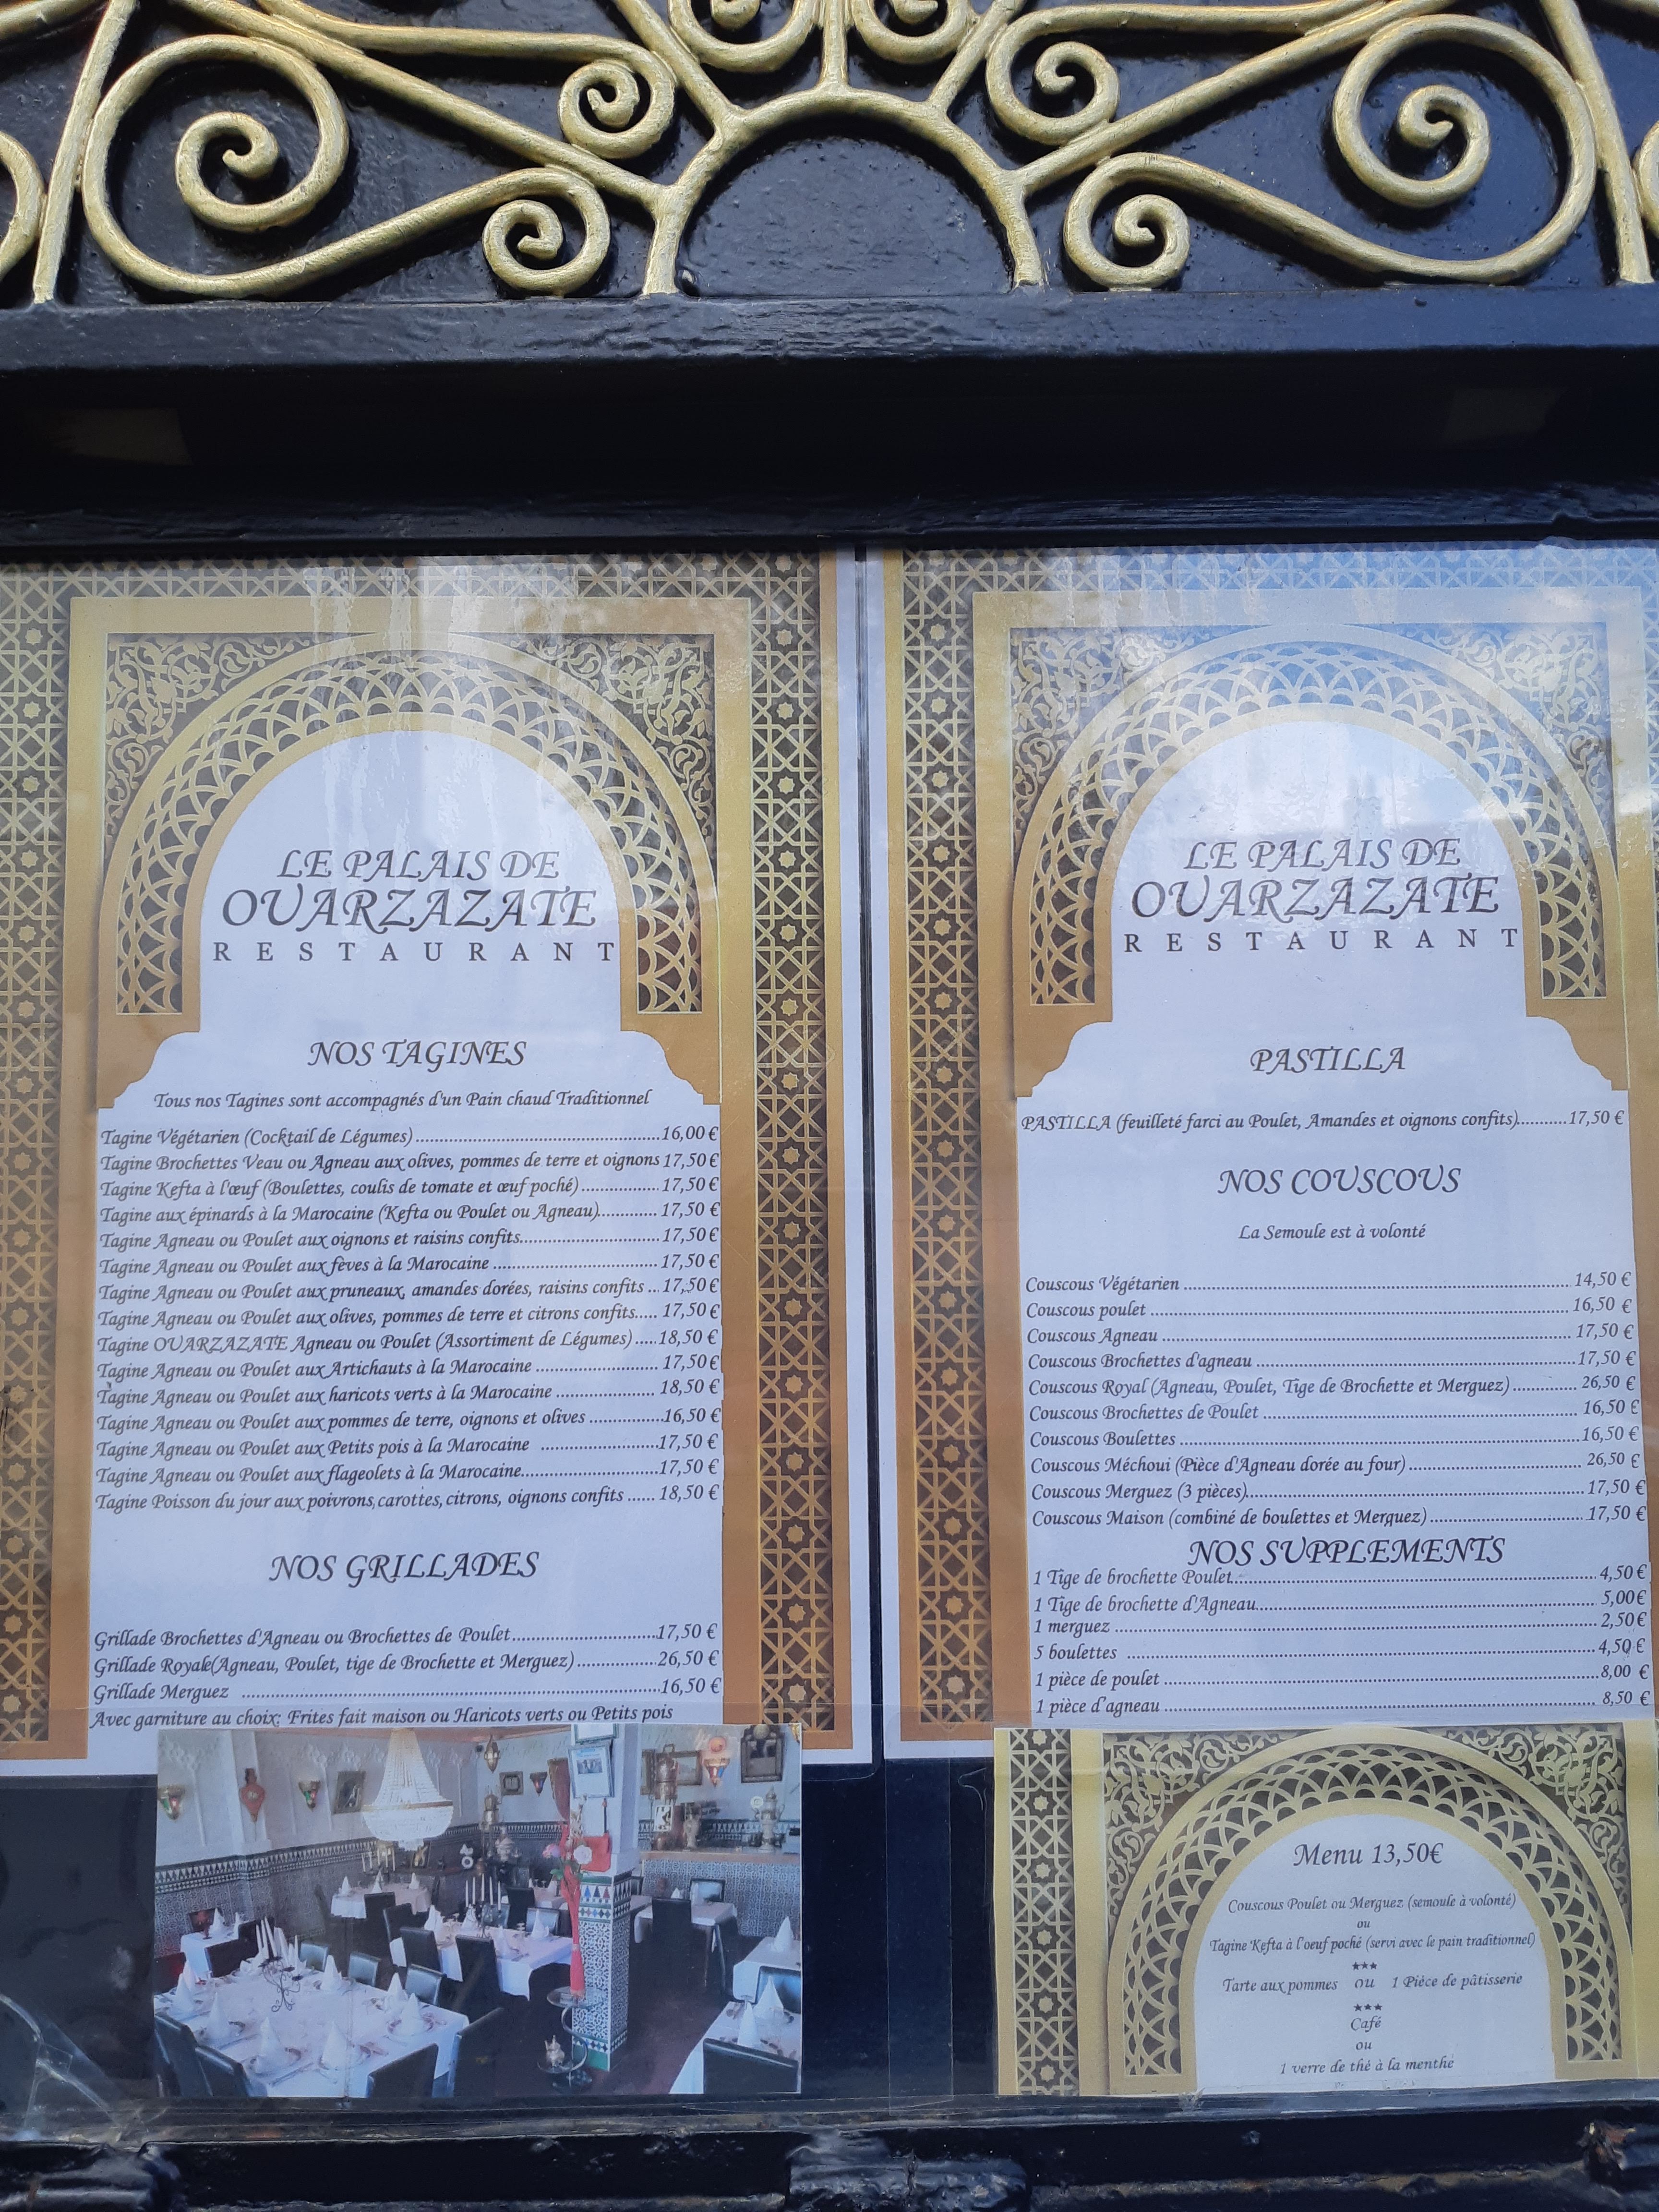 LE PALAIS DE
OUARZAZATE
RESTAURANT
NOS TAGINES
Tous nos Tagines sont accompagnés d'un Pain chaud Traditionnel
Tagine Végétarien (Cocktail de Légumes)..........16,00 €
Tagine Brochettes Veau ou Agneau aux olives, pommes de terre et oignons 17,50 €
Tagine Kefta à l'œuf (Boulettes, coulis de tomate et œuf poché)..........17,50 €
Tagine aux épinards à la Marocaine (Kefta ou Poulet ou Agneau)..........17,50 €
Tagine Agneau ou Poulet aux oignons et raisins confits..........17,50 €
Tagine Agneau ou Poulet aux fèves à la Marocaine ..........17,50 €
Tagine Agneau ou Poulet aux pruneaux, amandes dorées, raisins confits ...17,50 €
Tagine Agneau ou Poulet aux olives, pommes de terre et citrons confits..... 17,50 €
Tagine OUARZAZATE Agneau ou Poulet (Assortiment de Légumes).....18,50 €
Tagine Agneau ou Poulet aux Artichauts à la Marocaine .......... 17,50 €
Tagine Agneau ou Poulet aux haricots verts à la Marocaine .......... 18,50 €
Tagine Agneau ou Poulet aux pommes de terre, oignons et olives ..........16,50 €
Tagine Agneau ou Poulet aux Petits pois à la Marocaine ..........17,50 €
Tagine Agneau ou Poulet aux flageolets à la Marocaine..........17,50 €
Tagine Poisson du jour aux poivrons, carottes, citrons, oignons confits ...... 18,50 €
NOS GRILLADES
Grillade Brochettes d'Agneau ou Brochettes de Poulet..........17,50 €
Grillade Royale(Agneau, Poulet, tige de Brochette et Merguez)..........26,50 €
Grillade Merguez ..........16,50 €
Avec garniture au choix: Frites fait maison ou Haricots verts ou Petits pois
LE PALAIS DE
OUARZAZATE
RESTAURANT
PASTILLA
PASTILLA (feuilleté farci au Poulet, Amandes et oignons confits)..........17,50 €
NOS COUSCOUS
La Semoule est à volonté
Couscous Végétarien ..........14,50 €
Couscous poulet ..........16,50 €
Couscous Agneau ..........17,50 €
Couscous Brochettes d'agneau ..........17,50 €
Couscous Royal (Agneau, Poulet, Tige de Brochette et Merguez).......... 26,50 €
Couscous Brochettes de Poulet .......... 16,50 €
Couscous Boulettes ..........16,50 €
Couscous Méchoui (Pièce d'Agneau dorée au four).......... 26,50 €
Couscous Merguez (3 pièces)..........17,50 €
Couscous Maison (combiné de boulettes et Merguez)..........17,50 €
NOS SUPPLEMENTS
1 Tige de brochette Poulet.......... 4,50 €
1 Tige de brochette d'Agneau.......... 5,00€
1 merguez ..........2,50 €
5 boulettes ..........4,50 €
1 pièce de poulet ..........8,00 €
1 pièce d'agneau .......... 8,50 €
Menu 13,50€
Couscous Poulet ou Merguez (semoule à volonté)
ou
Tagine Kefta à l'oeuf poché (servi avec le pain traditionnel)
***
Tarte aux pommes ou 1 Pièce de pâtisserie
***
Café
ou
1 verre de thé à la menthe